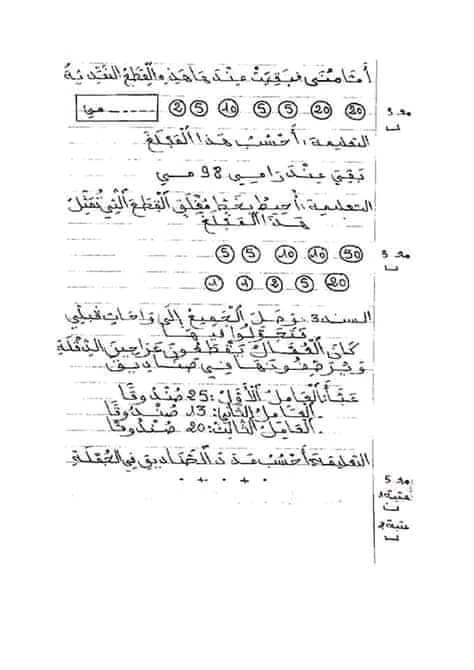 أما منتهى فبقيت عندها هذه القطع النقدية
20 20 5 5 10 5 2 ...... مي
مع 3
التعليمة: أحسب هذا المبلغ
بقي عند رامي 98 مي
التعليمة: أحيط بخط مغلق القطع التي تمثل
هذا المبلغ
50 10 10 5 5
مع 3
20 5 2 1 1
السند 3: وصل الجميع إلى واحات قبلي
فتجولوا فيها
كان العمال يقطعون عراجين الدقلة
ويرصفونها في صناديق
عبأ العامل الأول: 25 صندوقا
العامل الثاني: 13 صندوقا
العامل الثالث: 20 صندوقا
التعليمة: أحسب عدد الصناديق في الجملة
مع 5
عتبة 1
عتبة 2